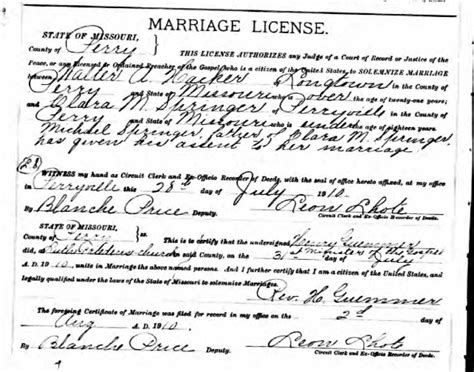 MARRIAGE LICENSE.
STATE OF MISSOURI,
County of Perry
ss.
THIS LICENSE AUTHORIZES any Judge of a Court of Record or Justice of the
Peace, or any Licensed or Ordained Preacher of the Gospel, who is a citizen of the United States, to SOLEMNIZE MARRIAGE
between Walter A. Hacker of Longtown in the County of
Perry and State of Missouri who is over the age of twenty-one years; and
Clara M. Springer of Perryville in the County of
Perry and State of Missouri who is under the age of eighteen years.
Michael Springer, father of Clara M. Springer
has given his assent to her marriage
WITNESS my hand as Circuit Clerk and Ex-Officio Recorder of Deeds, with the seal of office hereto affixed, at my office
in Perryville this 28th day of July 1910.
By Blanche Price Leon Lhote
Circuit Clerk and Ex-Officio Recorder of Deeds.
STATE OF MISSOURI,
County of Perry
ss.
This is to certify that the undersigned Henry Guemmer
a Minister of the Gospel
did, at church in said County, on the 31st day of July
A. D. 1910, unite in Marriage the above named persons. And I further certify that I am a citizen of the United States, and
legally qualified under the laws of the State of Missouri to solemnize Marriages.
Rev. H. Guemmer
The foregoing Certificate of Marriage was filed for record in my office on the 2d day of
Aug A. D. 1910.
By Blanche Price Leon Lhote
Circuit Clerk and Ex-Officio Recorder of Deeds.